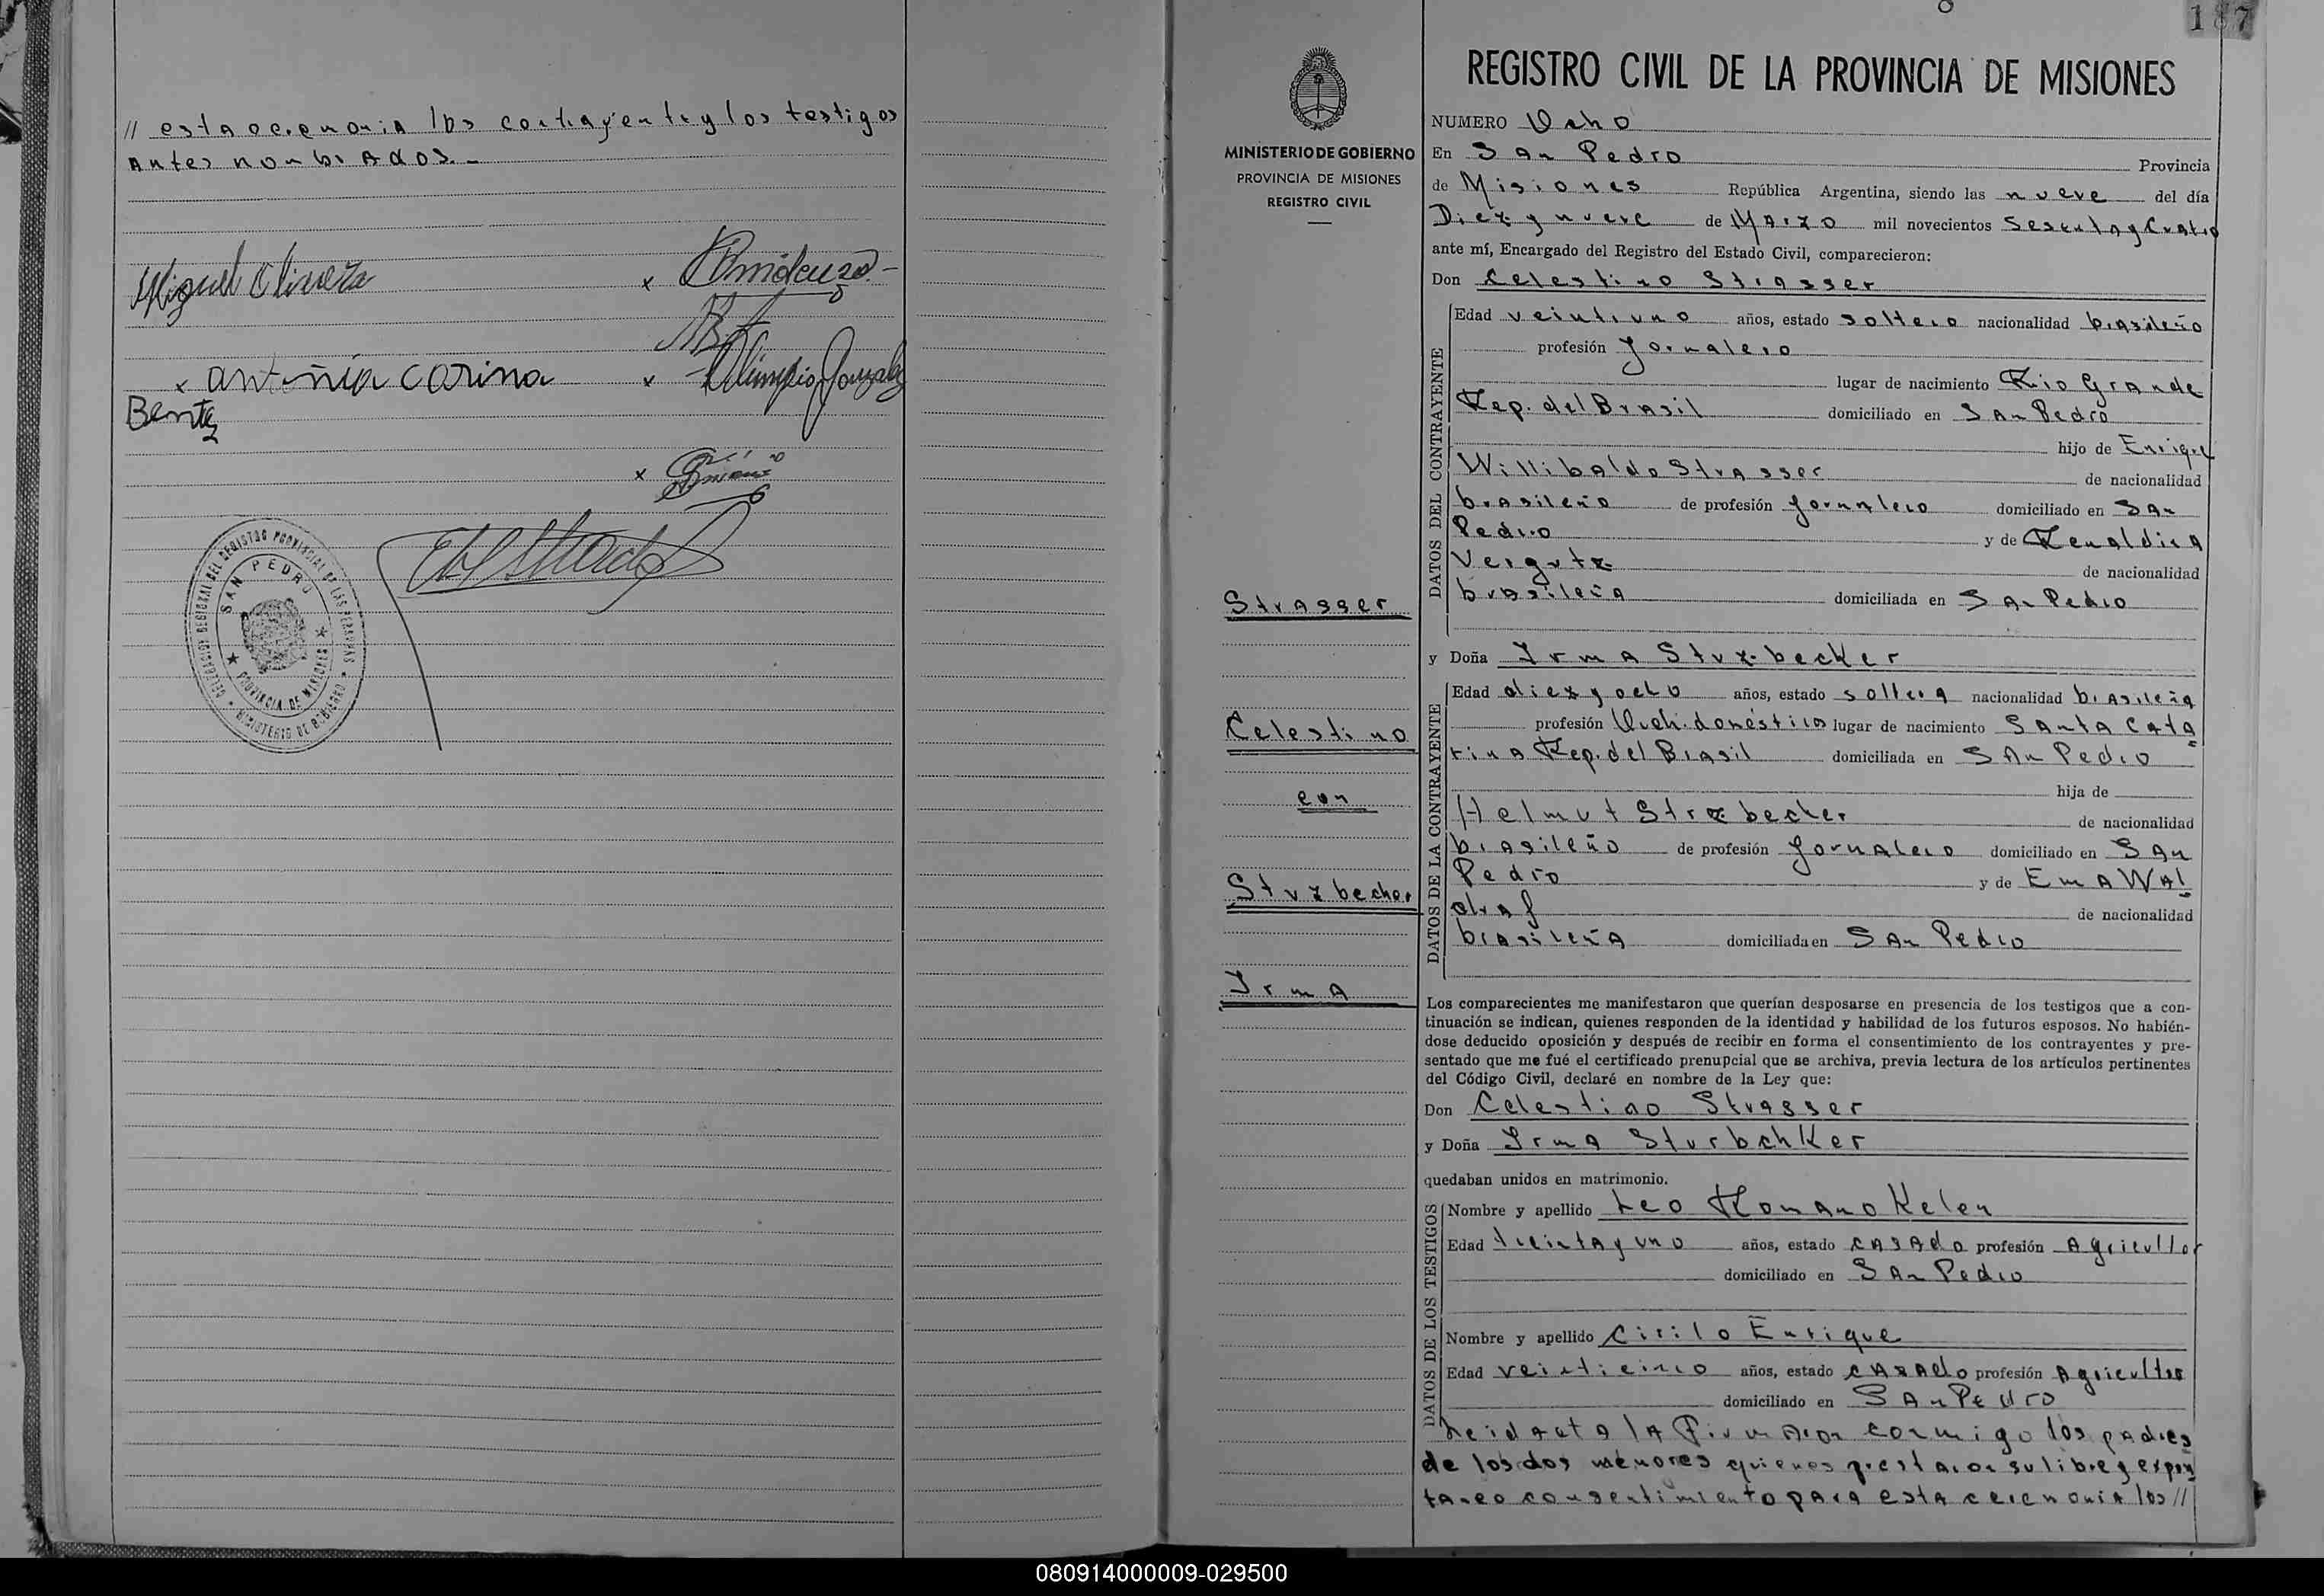 // esta ceremonia los contrayente y los testigos
antes nombrados. -
Miguel Olivera
x
x Antoñia Carina
x Olimpio Gonzalez
Benitez
x
DELEGACION REGIONAL DEL REGISTRO PROVINCIAL DE LAS PERSONAS
SAN PEDRO
PROVINCIA DE MISIONES
MINISTERIO DE GOBIERNO
187
MINISTERIO DE GOBIERNO
PROVINCIA DE MISIONES
REGISTRO CIVIL
Strasser
Celestino
con
Stuzbecher
Irma
REGISTRO CIVIL DE LA PROVINCIA DE MISIONES
NUMERO Ocho
En San Pedro Provincia
de Misiones República Argentina, siendo las nueve del día
Diez y nueve de Marzo mil novecientos Sesenta y Cuatro
ante mí, Encargado del Registro del Estado Civil, comparecieron:
Don Celestino Strasser
DATOS DEL CONTRAYENTE
Edad veintiuno años, estado soltero nacionalidad brasileño
profesión Jornalero
lugar de nacimiento Rio Grande
Rep. del Brasil domiciliado en San Pedro
hijo de Enrique
Willibaldo Strasser de nacionalidad
brasileño de profesión Jornalero domiciliado en San
Pedro y de Renaldina
Vergutz de nacionalidad
brasileña domiciliada en San Pedro
y Doña Irma Stuzbecker
DATOS DE LA CONTRAYENTE
Edad diez y ocho años, estado soltera nacionalidad brasileña
profesión Queh. doméstico lugar de nacimiento Santa Cata
rina Rep. del Brasil domiciliada en San Pedro
hija de
Helmut Struzbecher de nacionalidad
brasileño de profesión Jornalero domiciliado en San
Pedro y de Ema Wal
draf de nacionalidad
brasileña domiciliada en San Pedro
Los comparecientes me manifestaron que querían desposarse en presencia de los testigos que a con-
tinuación se indican, quienes responden de la identidad y habilidad de los futuros esposos. No habién-
dose deducido oposición y después de recibir en forma el consentimiento de los contrayentes y pre-
sentado que me fué el certificado prenupcial que se archiva, previa lectura de los artículos pertinentes
del Código Civil, declaré en nombre de la Ley que:
Don Celestino Strasser
y Doña Irma SturbchKer
quedaban unidos en matrimonio.
DATOS DE LOS TESTIGOS
Nombre y apellido Leo Romano Kelen
Edad treinta y uno años, estado casado profesión Agricultor
domiciliado en San Pedro
Nombre y apellido Cirilo Enrique
Edad veinticinco años, estado casado profesión Agricultor
domiciliado en San Pedro
Leid acta la Firmaron conmigo los padres
de los dos menores quienes prestaron su libre y expon
taneo consentimiento para esta ceremonia los //
080914000009-029500